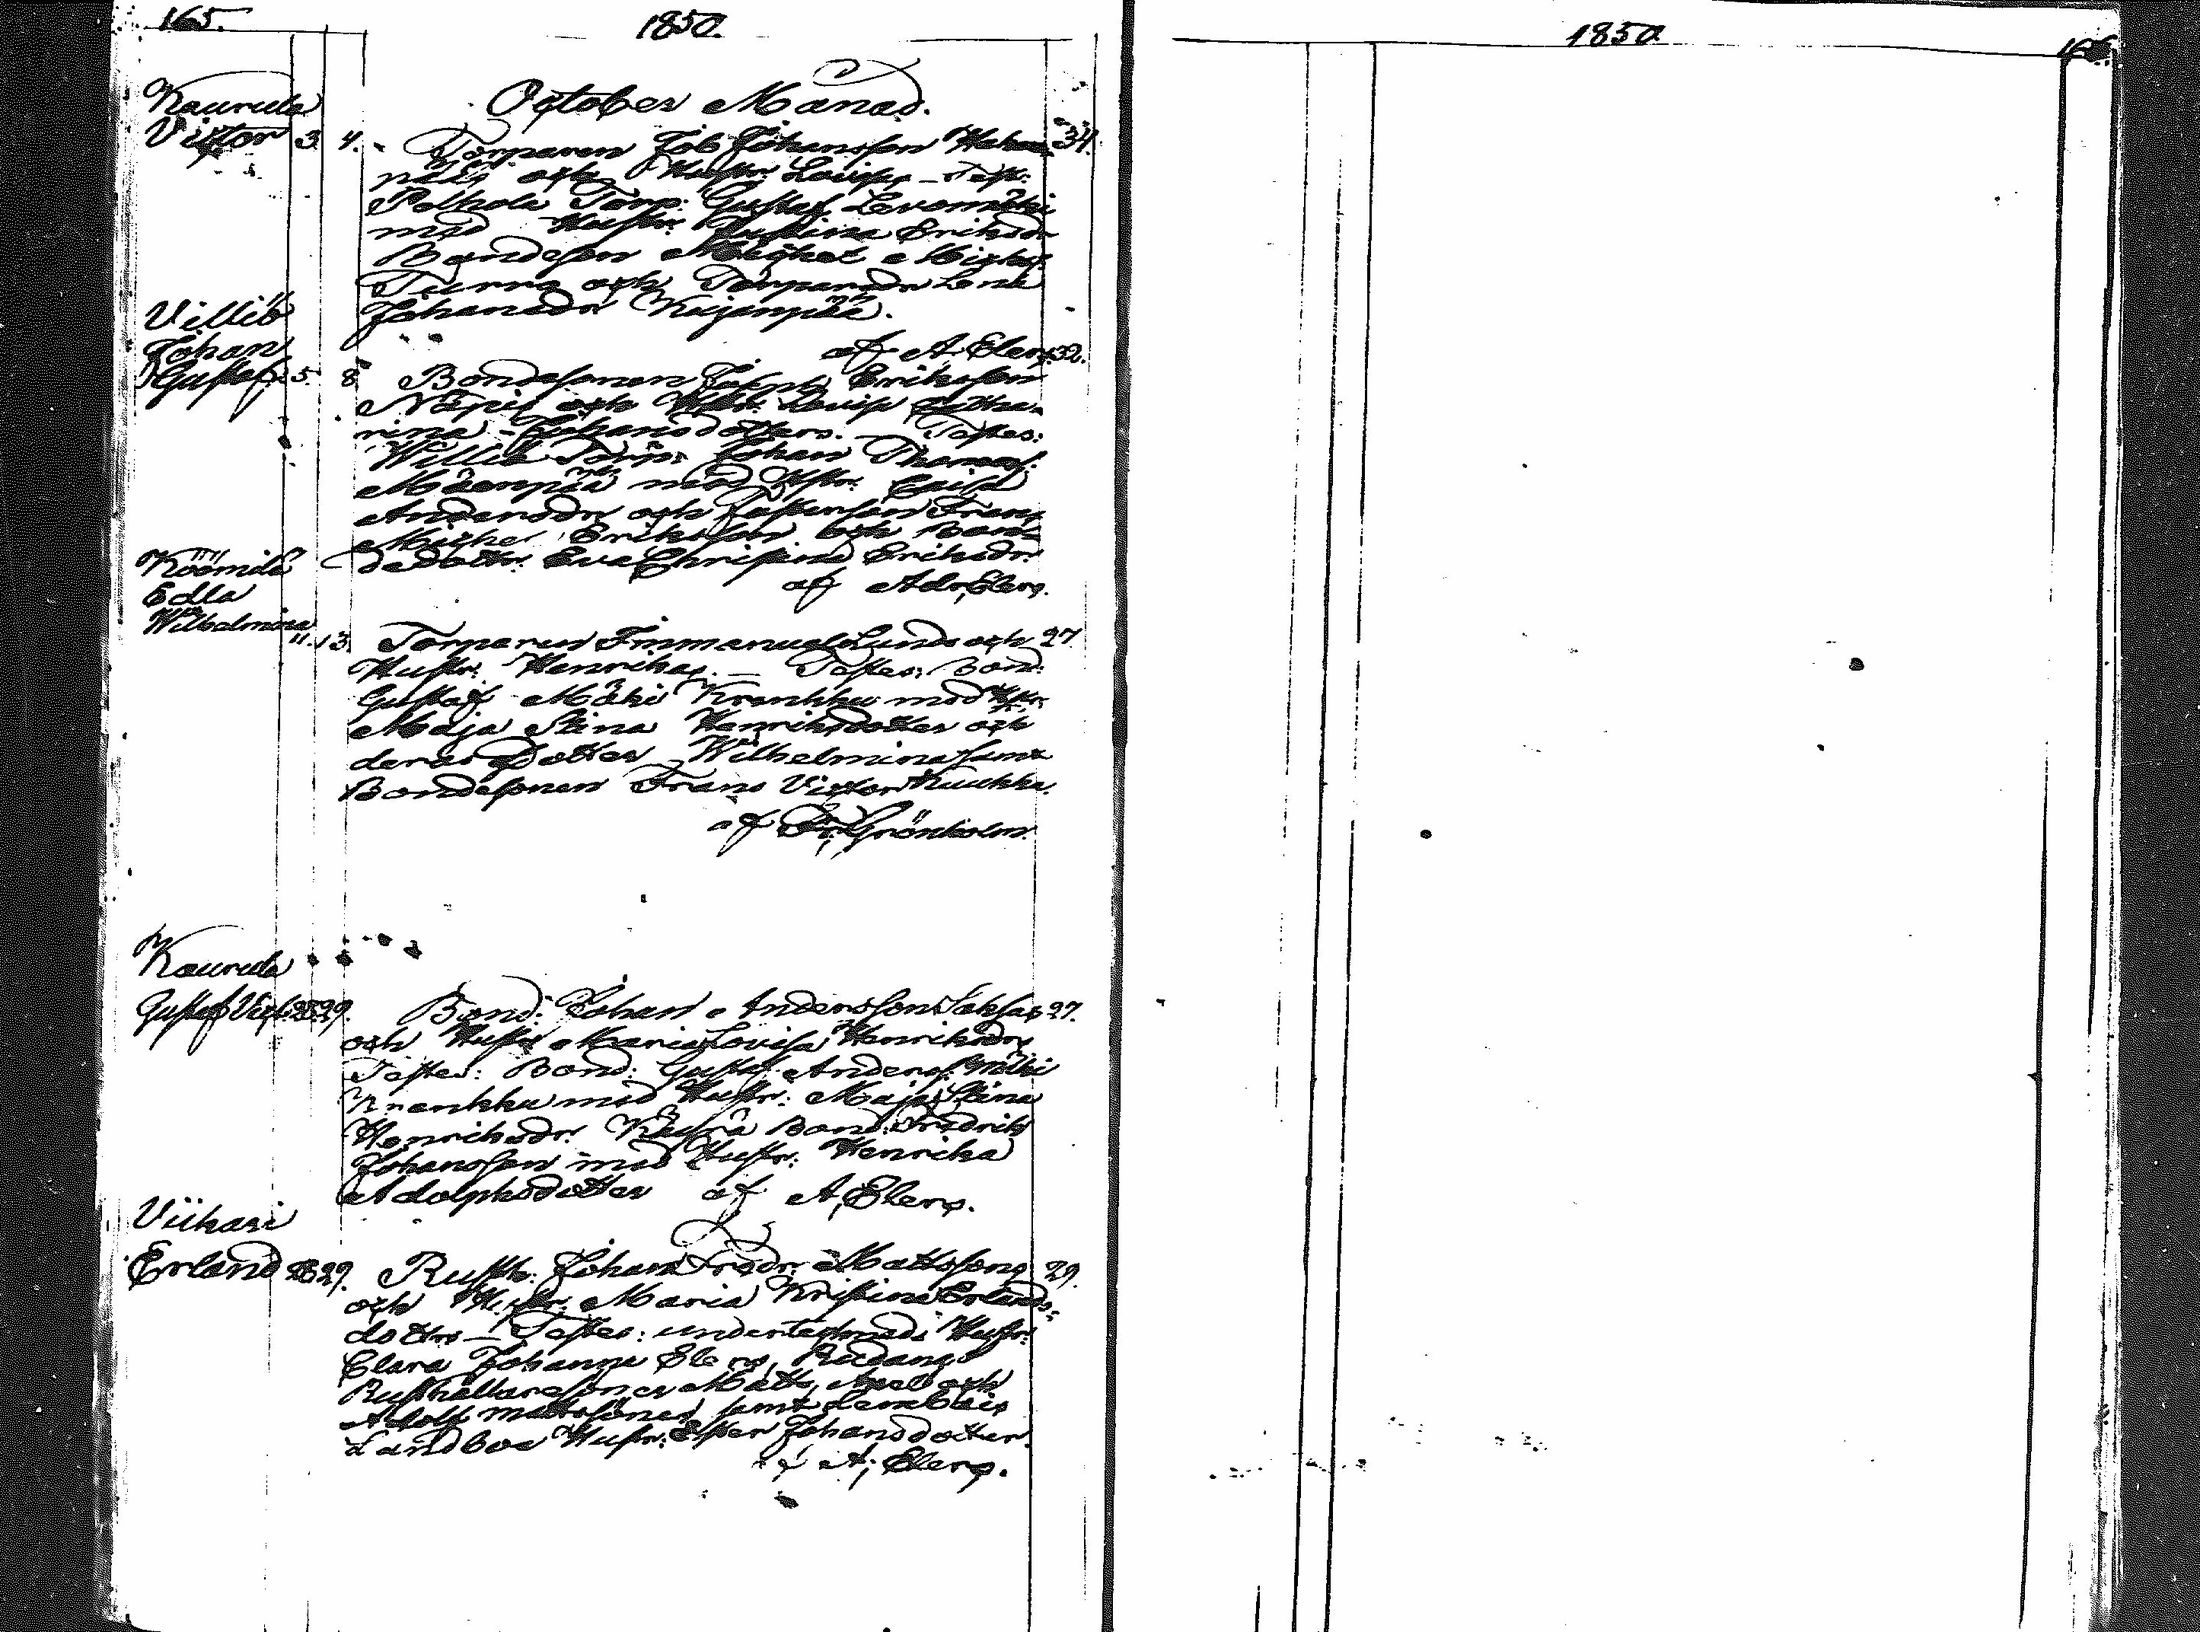 165.
1850.
October Månad.
Kaurula
Victor 3. 4. Torparen Job Johansson 34.
och Hustr. Lovisas – Test:
Polkola Torp: Gustaf Levomäki
med Hustr. Justina Eriksdr
Bondeson Michel Michelss.
Turra och Torparedr Lena
Johansdr Kujanpää.
af A. Elers.
Villilä
Johan
Gustaf 5. 8. Bondesonen Joseph Eriksson 32.
Näpis och Hustr. Lovisa Catha-
rina Johansdotters. – Testes:
Willilä Torp: Johan Thomass.
Mäenpää med Hstr. Caisa
Andersdr och Frans
Michel Eriksson och Bon-
dedottr. Eva Christina Eriksdr.
af Adr. Elers.
Köömilä
Edla
Wilhelmina 11. 13. Torparen Emmanuel Lunds och 27
Hustr. Henrikas. – Testes: Bond:
Gustaf Mäki Krankku med Hstr.
Maja Stina Henriksdotter och
deras Dotter Wilhelmina samt
Bondesonen Frans Victor Kuukka.
af Fr. Grönholm.
Kaurula
Gustaf Vict: 28. 29. Bond: Johan Anderssons Saksas 27.
och Hustr Maria Lovisa Henriksdrs
Testes: Bond: Gustaf Anderss. Mäki
Krankku med Hustr: Maja Stina
Henriksdr. Bond: Fredrik
Johansson med Hustr: Henrika
Adolphsdotter af A. Elers.
Viikari
Erland 28. 29. Rusth: Johan Fredr: Mattssons 29.
och Hustr: Maria Kristina Erlands-
dottrs – Testes: undertecknads Hustr:
Clara Johanna Elers, Rudangs
Rusthållaresöner Matts, Axel och
Adolf Mattssöner samt Lembois
Landboe Hustr: Ester Johansdotter.
af A. Elers.
1850.
166.